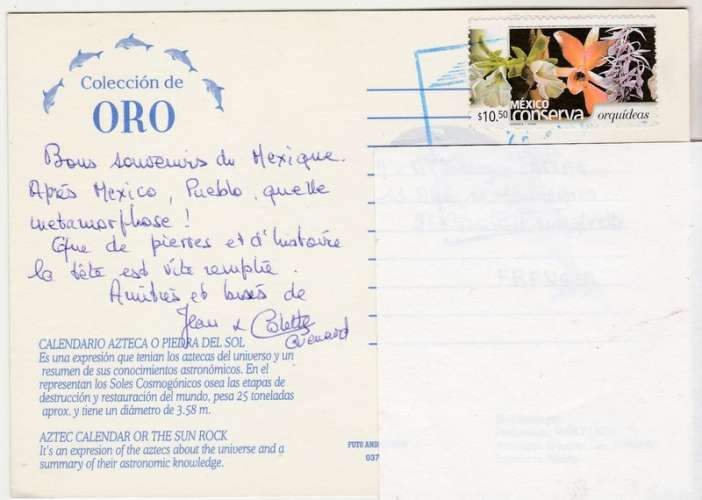 Colección de
ORO
Bons souvenirs du Mexique.
Après Mexico, Pueblo, quelle
metamorphose !
Que de pierres et d'histoire
la tête est vite remplie.
Amitiés et bises de
Jean & Colette
CALENDARIO AZTECA O PIEDRA DEL SOL
Es una expresión que tenian los aztecas del universo y un
resumen de sus conocimientos astronómicos. En el
representan los Soles Cosmogónicos osea las etapas de
destrucción y restauración del mundo, pesa 25 toneladas
aprox. y tiene un diámetro de 3.58 m.
AZTEC CALENDAR OR THE SUN ROCK
It's an expresion of the aztecs about the universe and a
summary of their astronomic knowledge.
FOTO AND
037
MÉXICO
$10.50 conserva orquídeas